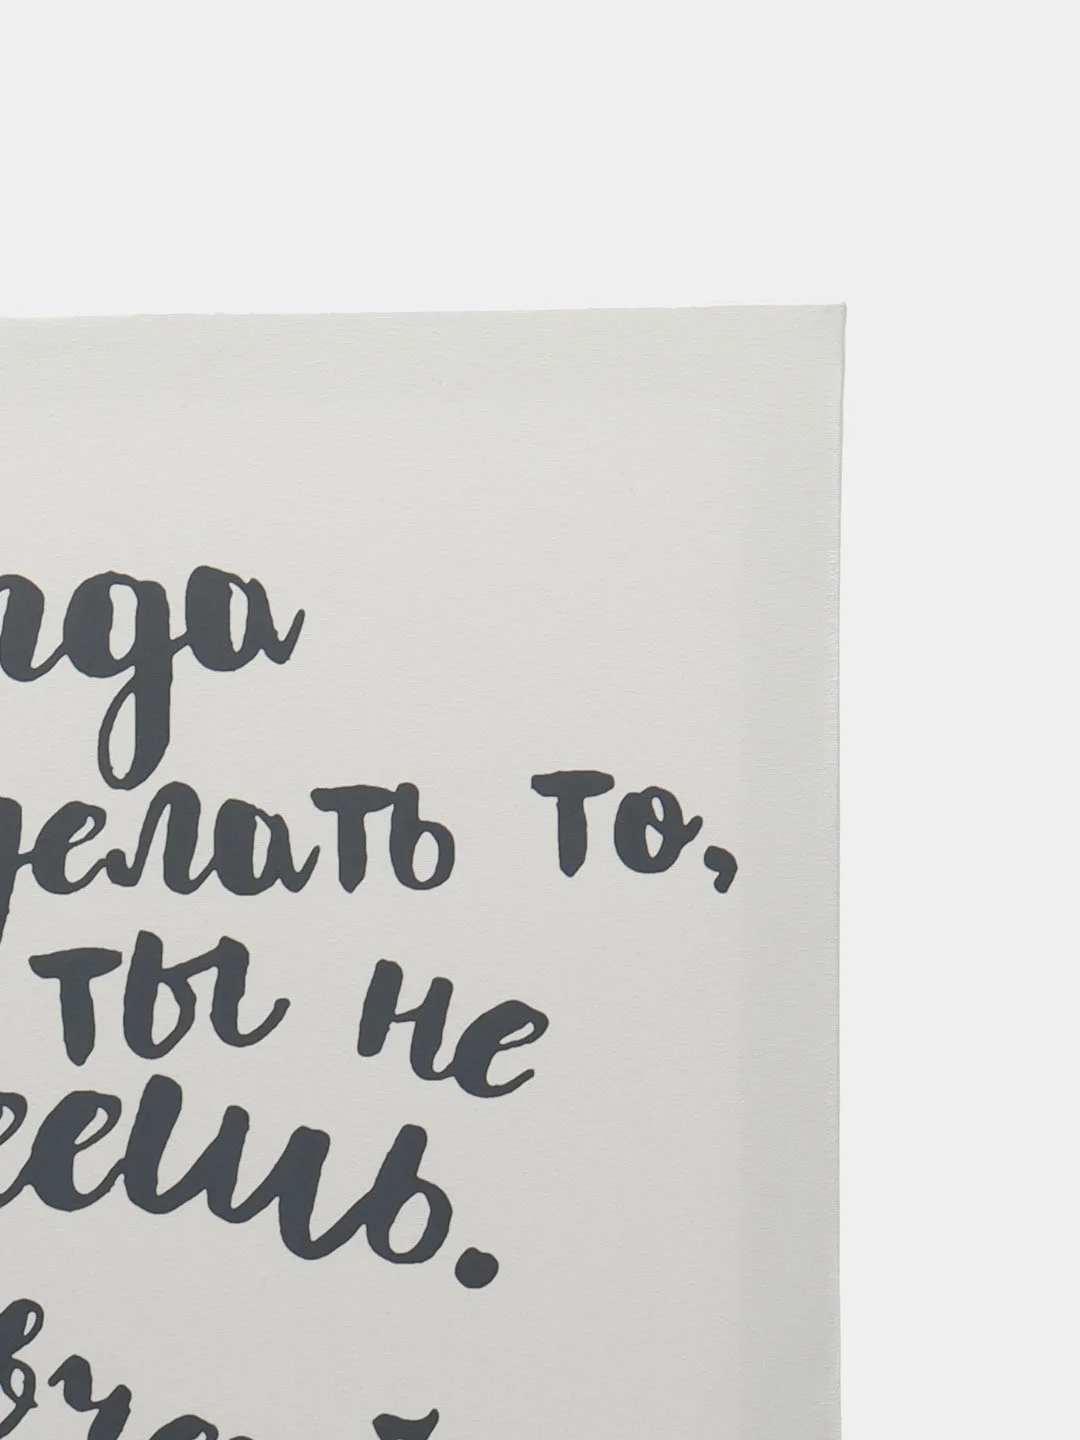 гда
делать то,
ты не
еешь.